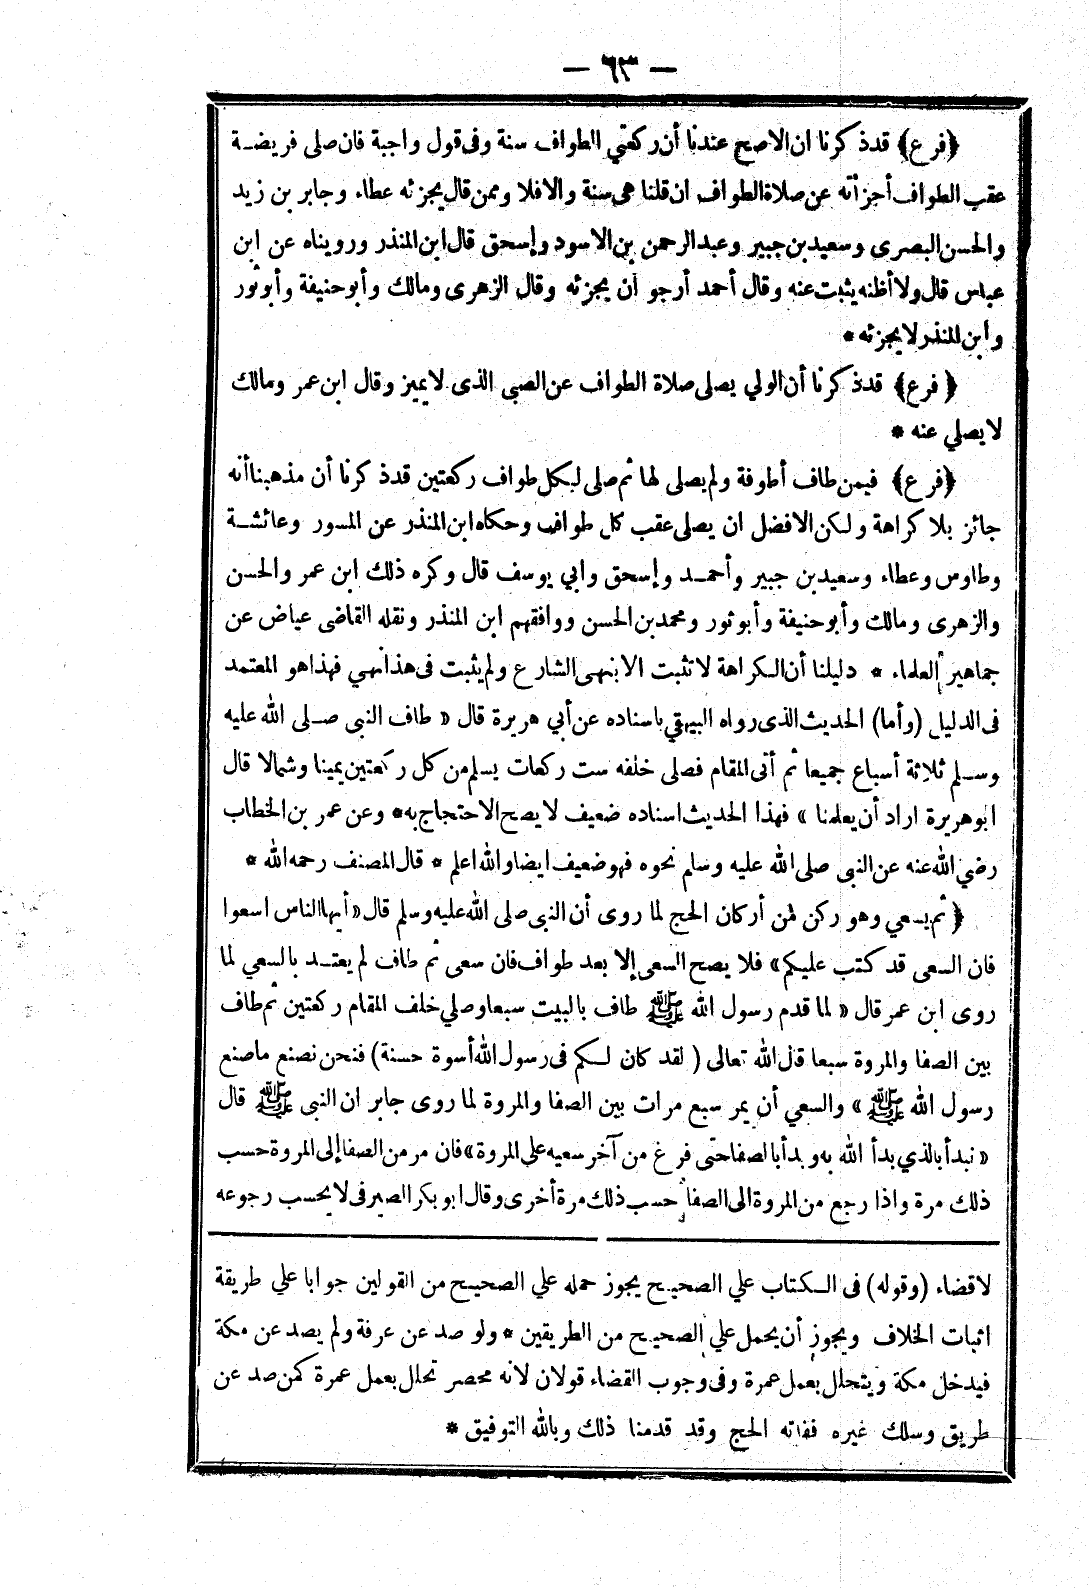 — ٦٣ —
﴿فرع﴾ قد ذكرنا ان الاصح عندنا أن ركعتي الطواف سنة وفى قول واجبة فان صلى فريضة
عقب الطواف أجزأته عن صلاة الطواف ان قلنا هى سنة والا فلا وممن قال يجزئه عطاء وجابر بن زيد
والحسن البصرى وسعيد بن جبير وعبد الرحمن بن الاسود وإسحق قال ابن المنذر ورويناه عن ابن
عباس قال ولا أظنه يثبت عنه وقال أحمد أرجو أن يجزئه وقال الزهرى ومالك وأبو حنيفة وأبو ثور
وابن المنذر لا يجزئه *
﴿فرع﴾ قد ذكرنا أن الولي يصلى صلاة الطواف عن الصبى الذى لا يميز وقال ابن عمر ومالك
لا يصلي عنه *
﴿فرع﴾ فيمن طاف أطوفة ولم يصلى لها ثم صلى لكل طواف ركعتين قد ذكرنا أن مذهبنا أنه
جائز بلا كراهة ولكن الافضل ان يصلى عقب كل طواف وحكاه ابن المنذر عن المسور وعائشة
وطاوس وعطاء وسعيد بن جبير وأحمد وإسحق وابي يوسف قال وكره ذلك ابن عمر والحسن
والزهرى ومالك وأبو حنيفة وأبو ثور ومحمد بن الحسن ووافقهم ابن المنذر ونقله القاضى عياض عن
جماهير العلماء * دليلنا أن الكراهة لا تثبت الا بنهى الشارع ولم يثبت فى هذا نهي فهذا هو المعتمد
فى الدليل (وأما) الحديث الذى رواه البيهقي باسناده عن أبي هريرة قال « طاف النبى صلى الله عليه
وسلم ثلاثة أسباع جميعا ثم أتى المقام فصلى خلفه ست ركعات يسلم من كل ركعتين يمينا وشمالا قال
ابو هريرة اراد أن يعلمنا » فهذا الحديث اسناده ضعيف لا يصح الاحتجاج به * وعن عمر بن الخطاب
رضي الله عنه عن النبى صلى الله عليه وسلم نحوه فهو ضعيف ايضا والله اعلم * قال المصنف رحمه الله *
﴿ ثم يسعي وهو ركن من أركان الحج لما روى أن النبى صلى الله عليه وسلم قال « أيها الناس اسعوا
فان السعى قد كتب عليكم » فلا يصح السعى إلا بعد طواف فان سعى ثم طاف لم يعتد بالسعي لما
روى ابن عمر قال « لما قدم رسول الله ﷺ طاف بالبيت سبعا وصلي خلف المقام ركعتين ثم طاف
بين الصفا والمروة سبعا قال الله تعالى ( لقد كان لكم فى رسول الله أسوة حسنة) فنحن نصنع ماصنع
رسول الله ﷺ » والسعي أن يمر سبع مرات بين الصفا والمروة لما روى جابر ان النبى ﷺ قال
« نبدأ بالذي بدأ الله به وبدأ بالصفا حتى فرغ من آخر سعيه علي المروة» فان مر من الصفا إلى المروة حسب
ذلك مرة واذا رجع من المروة الى الصفا حسب ذلك مرة أخرى وقال ابو بكر الصيرفى لا يحسب رجوعه
لا قضاء (وقوله) فى الكتاب علي الصحيح يجوز حمله علي الصحيح من القولين جوابا علي طريقة
اثبات الخلاف ويجوز أن يحمل علي الصحيح من الطريقين * ولو صد عن عرفة ولم يصد عن مكة
فيدخل مكة ويتحلل بعمل عمرة وفى وجوب القضاء قولان لانه محصر تحلل بعمل عمرة كمن صد عن
طريق وسلك غيره ففاته الحج وقد قدمنا ذلك وبالله التوفيق *